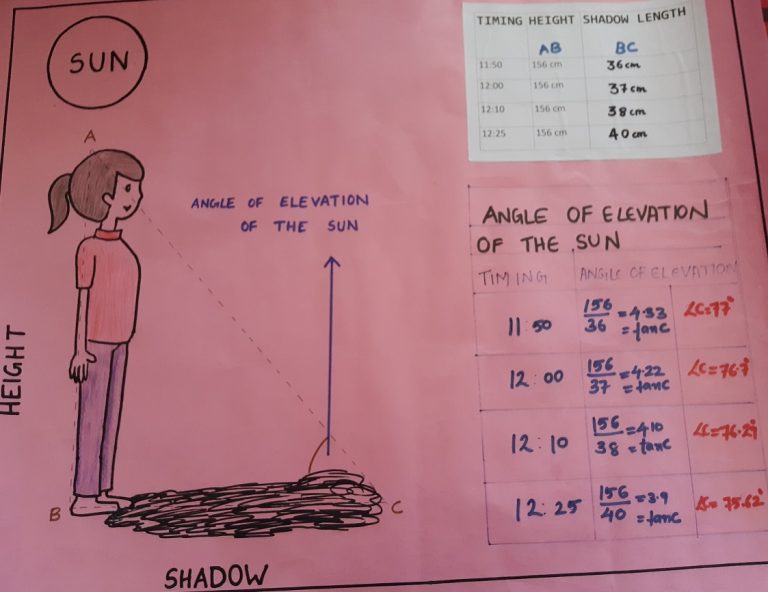 SUN
A
ANGLE OF ELEVATION
OF THE SUN
HEIGHT
B
C
SHADOW
TIMING HEIGHT SHADOW LENGTH
AB BC
11:50 156 cm 36cm
12:00 156 cm 37cm
12:10 156 cm 38cm
12:25 156 cm 40cm
ANGLE OF ELEVATION
OF THE SUN
TIMING ANGLE OF ELEVATION
11:50 156/36 =4.33 =tanC ∠C=77°
12:00 156/37 =4.22 =tanC
12:10 156/38 =4.10 =tanC
12:25 156/40 =3.9 =tanC ∠C= 75.62°